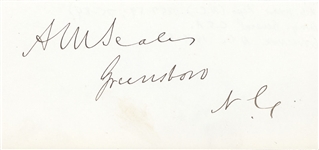 A M Scales
Greensboro
N. C.